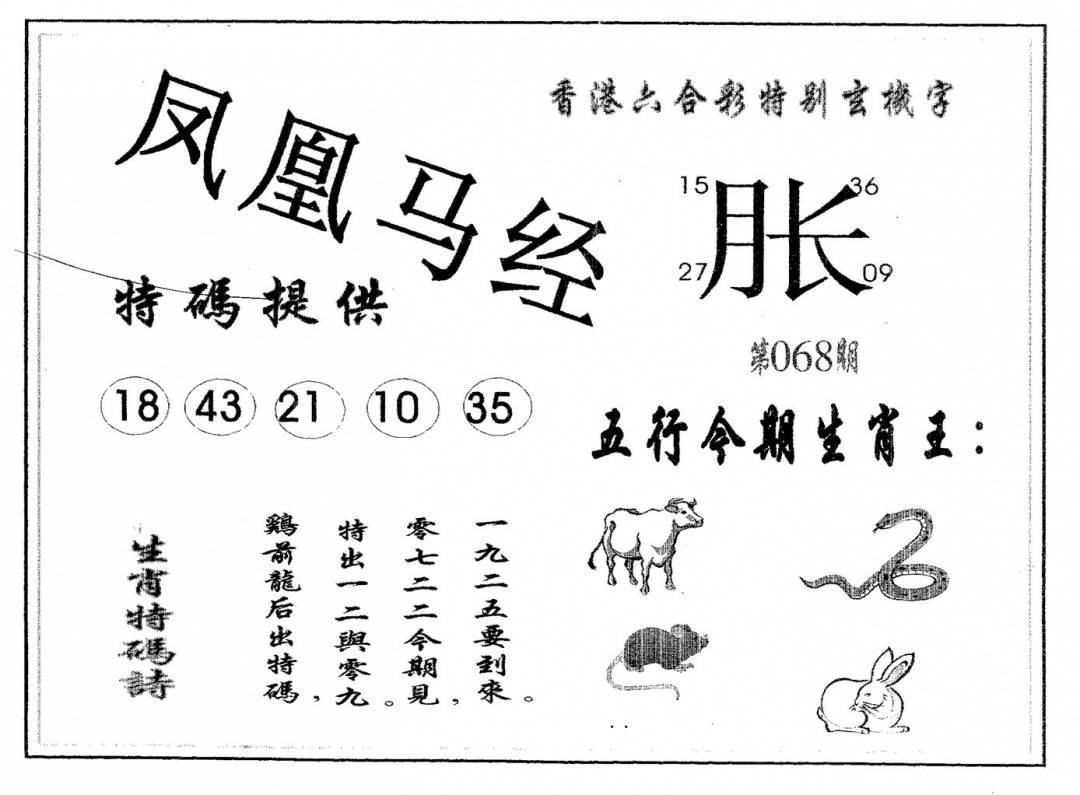 凤凰马经
香港六合彩特别玄機字
15 36
胀
27 09
特碼提供
第068期
18 43 21 10 35
五行今期生肖王：
生肖特碼詩
鷄前龍后出特碼，
特出一二與零九。
零七二二今期見，
一九二五要到來。